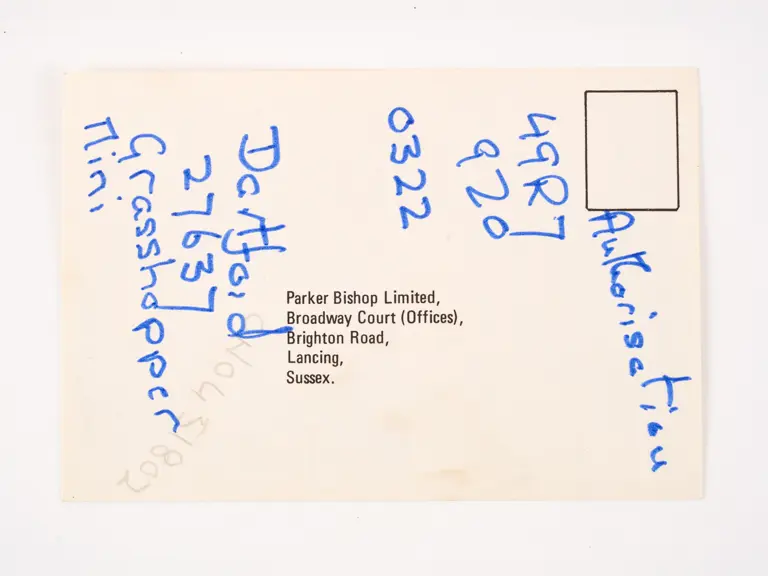 Authorisation
49R7
920
0322
Dartford
27637
Grasshopper
Mini
Parker Bishop Limited,
Broadway Court (Offices),
Brighton Road,
Lancing,
Sussex.